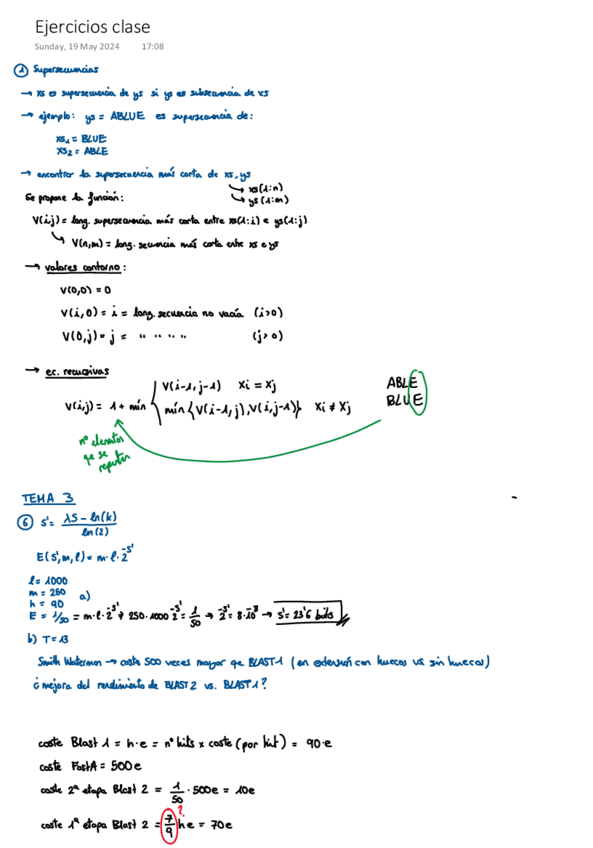 Ejercicios clase
Sunday, 19 May 2024 17:08
① Supersecuencias
→ xs es supersecuencia de ys si ys es subsecuencia de xs
→ ejemplo: ys = ABLUE es supersecuencia de:
xs₁ = BLUE
xs₂ = ABLE
→ encontrar la supersecuencia más corta de xs, ys
↳ xs(1:n)
Se propone la función: ↳ ys(1:m)
V(i,j) = long. supersecuencia más corta entre xs(1:i) e ys(1:j)
↳ V(n,m) = long. secuencia más corta entre xs e ys
→ valores contorno:
V(0,0) = 0
V(i,0) = i = long. secuencia no vacía (i>0)
V(0,j) = j = " " " " (j>0)
→ ec. recursivas
V(i,j) = 1 + mín { V(i-1, j-1) xi = xj
mín { V(i-1, j), V(i, j-1) } xi ≠ xj
ABLE
BLUE
nº elementos
que se
repiten
TEMA 3
⑥ s' = λS - ln(k) / ln(2)
E(s', m, l) = m · l · 2^-s'
l = 1000
m = 250 a)
h = 90
E = 1/50 = m · l · 2^-s' → 250 · 1000 2^-s' = 1/50 → 2^-s' = 8 · 10^-8 → s' = 23'6 bits
b) T = 13
Smith Waterman → coste 500 veces mayor que BLAST1 (en extensión con huecos vs sin huecos)
¿ mejora del rendimiento de BLAST2 vs. BLAST1 ?
coste Blast 1 = h · e = nº hits x coste (por hit) = 90 · e
coste FastA = 500 e
coste 2ª etapa Blast 2 = 1/50 · 500e = 10e
?
coste 1ª etapa Blast 2 = 7/9 he = 70e